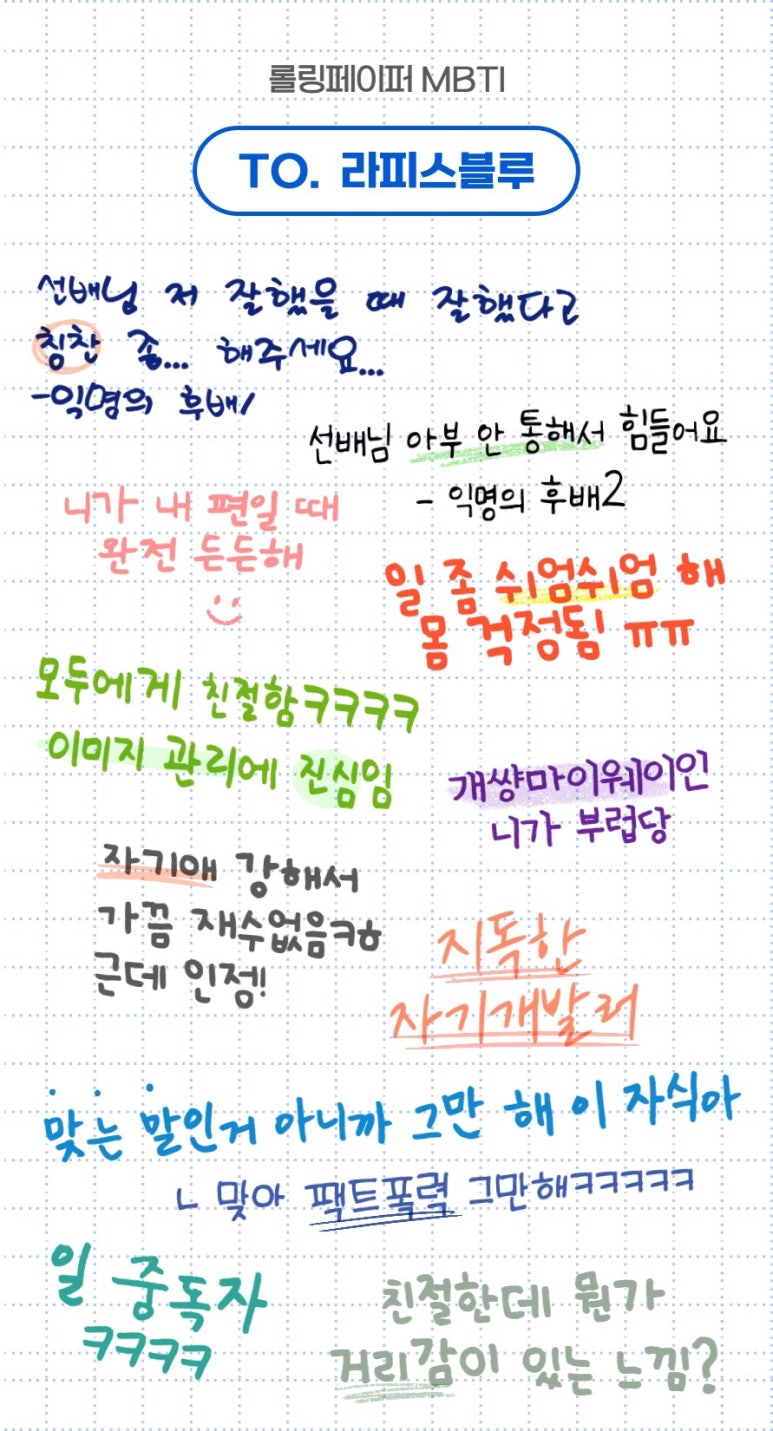 롤링페이퍼 MBTI
TO. 라피스블루
선배님 저 잘했을 때 잘했다고
칭찬 좀... 해주세요...
-익명의 후배1
선배님 아부 안 통해서 힘들어요
- 익명의 후배2
니가 내 편일 때
완전 든든해
일 좀 쉬엄쉬엄 해
몸 걱정됨! ㅠㅠ
모두에게 친절함ㅋㅋㅋㅋ
이미지 관리에 진심임
개썅마이웨이인
니가 부럽당
자기애 강해서
가끔 재수없음ㅋㅎ
근데 인정!
지독한
자기개발러
맞는 말인거 아니까 그만 해 이 자식아
ㄴ 맞아 팩트폭력 그만해ㅋㅋㅋㅋㅋ
일 중독자
ㅋㅋㅋㅋ
친절한데 뭔가
거리감이 있는 느낌?